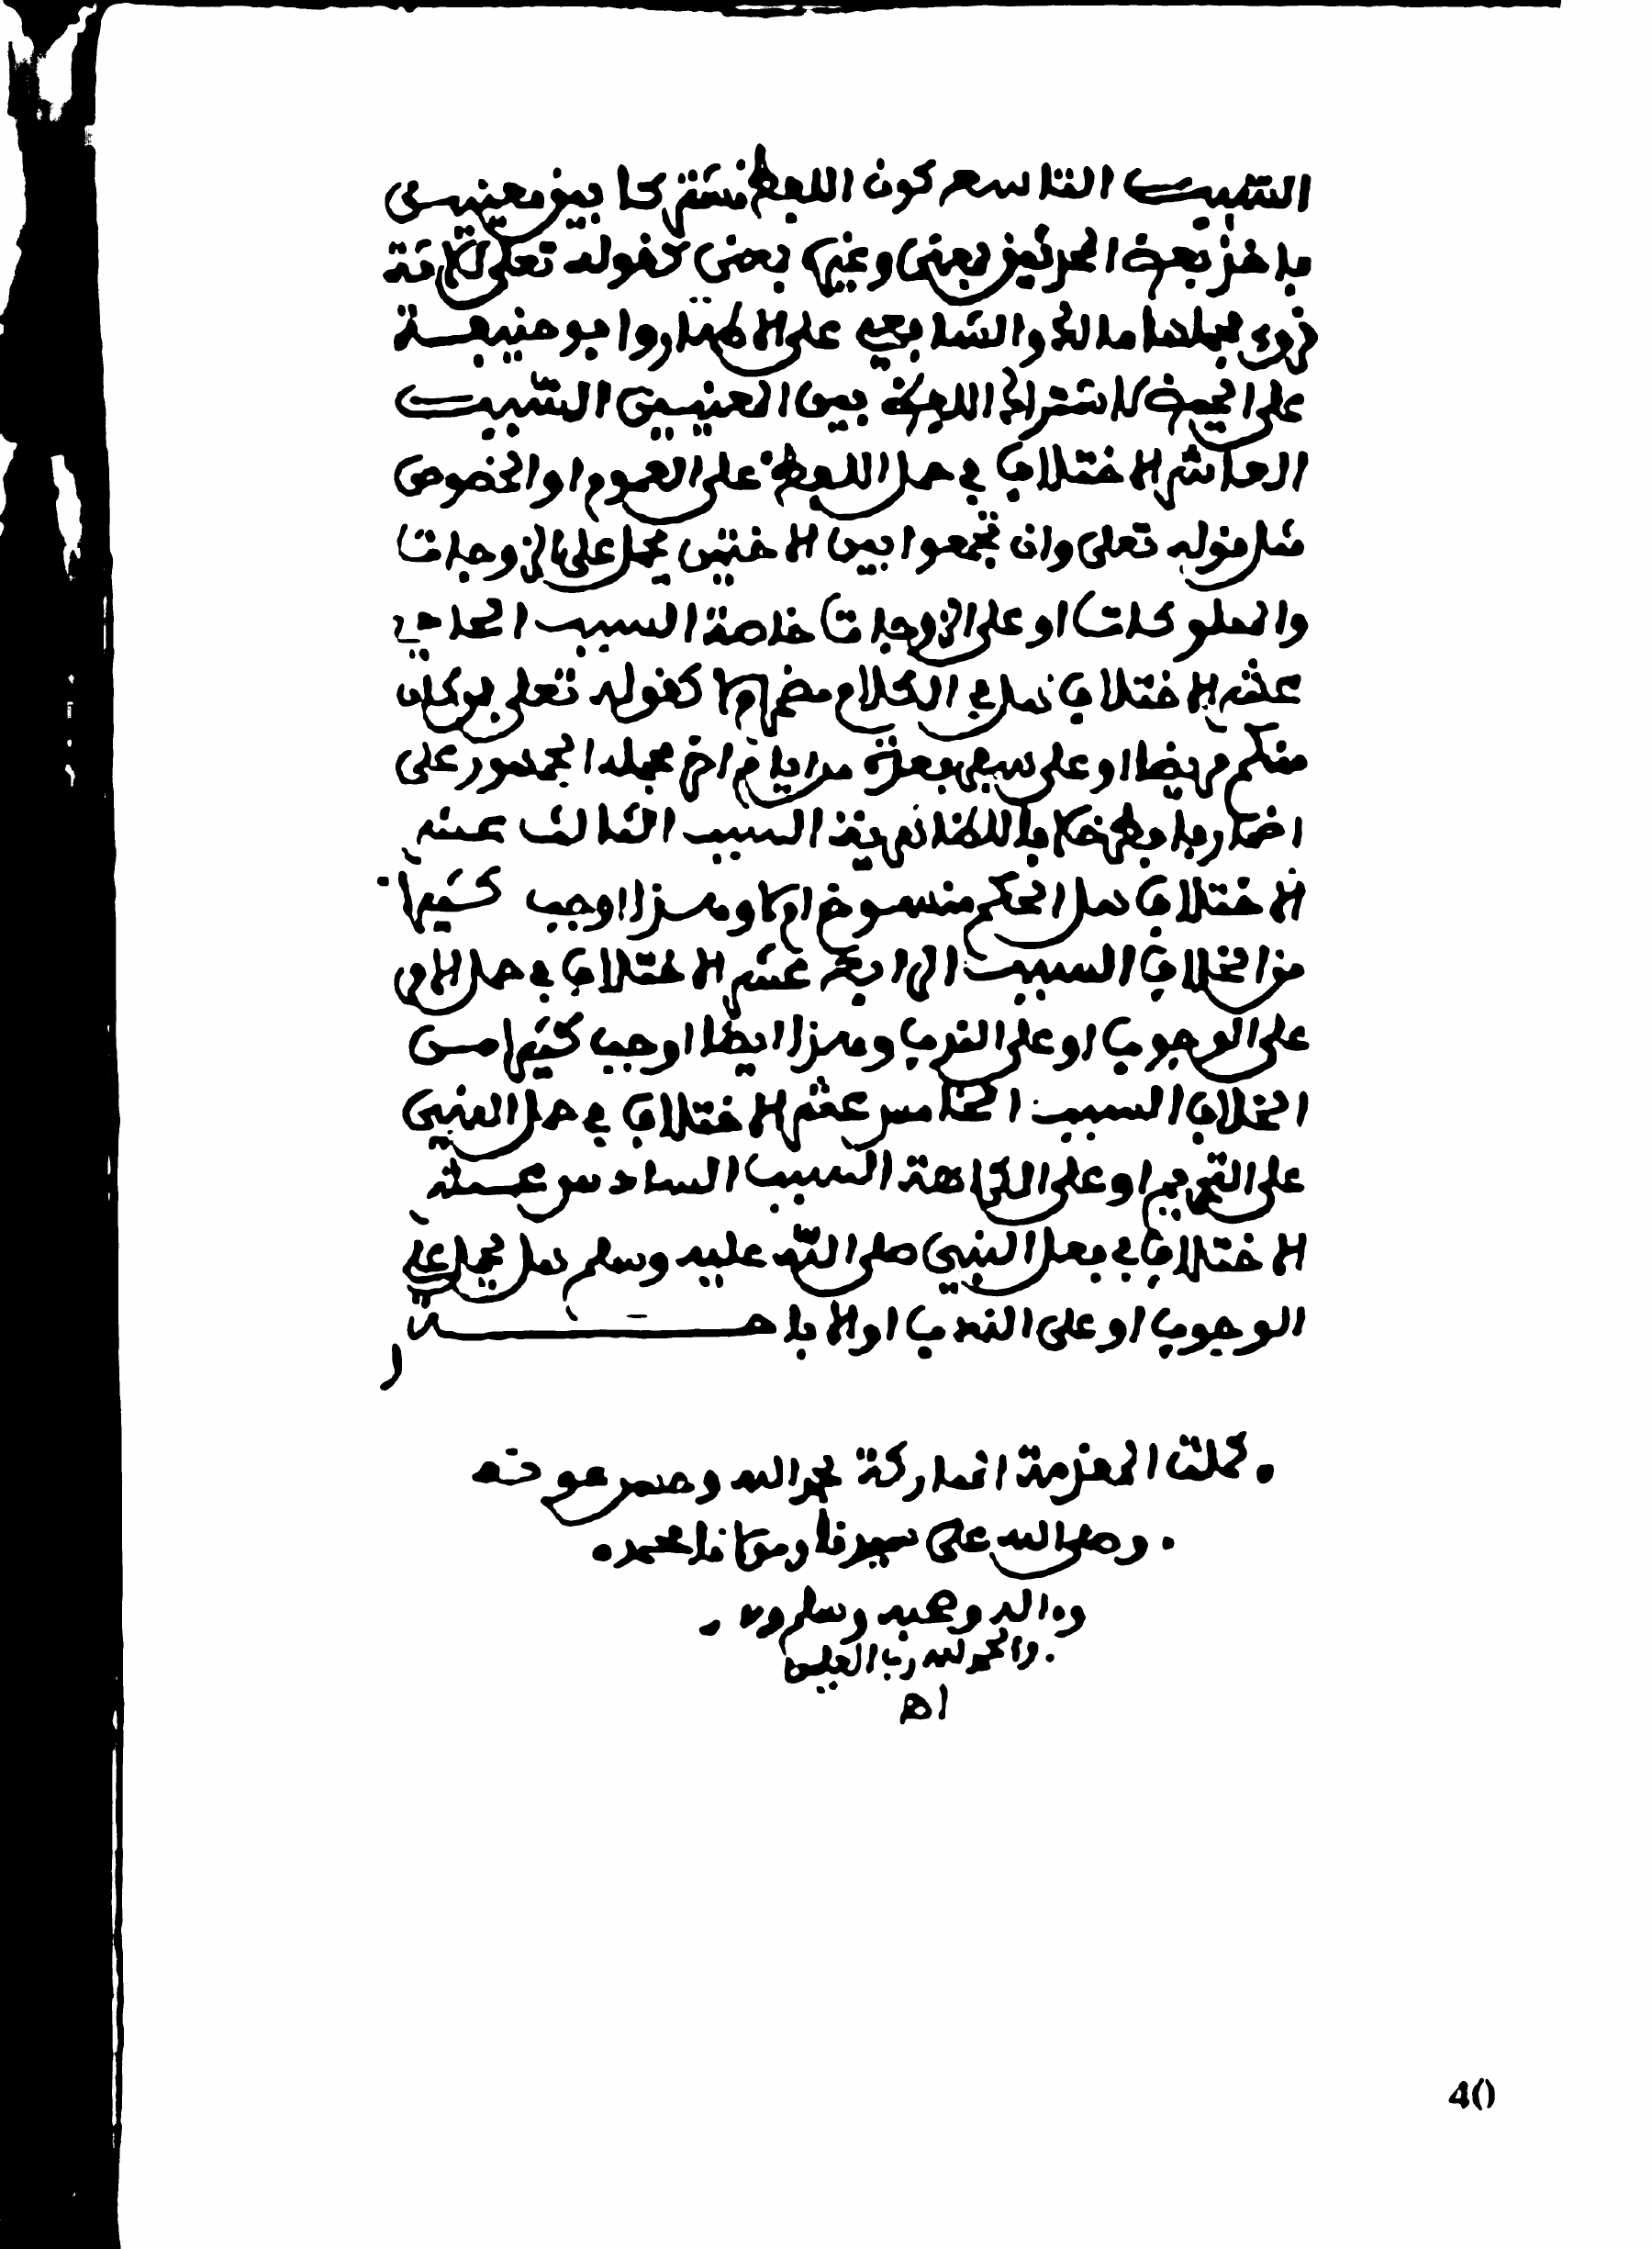 السبب التاسع كون اللفظ مشتركا بين معنيين
فاخذ بعض المجتهدين بمعنى وغيره بمعنى كقوله تعلى ثلاثة
قروء فحملها مالك والشافعي على الاطهار وابو حنيفة
على الحيض لاشتراك اللفظ بين المعنيين السبب
العاشر الاختلاف في حمل اللفظ على العموم او الخصوص
مثل قوله تعلى وان تجمعوا بين الاختين يحمل على الزوجات
والمملوكات او على الزوجات خاصة السبب الحادي
عشر الاختلاف هل في الكلام مضمر ام لا كقوله تعلى فمن كان
منكم مريضا او على سفر فعدة من ايام اخر فحمله الجمهور على
اضمار فافطر خلافا للظاهرية السبب الثالث عشر
الاختلاف هل الحكم منسوخ ام لا وهذا اوجب كثيرا
من الخلاف السبب الرابع عشر الاختلاف في حمل الامر
على الوجوب او على الندب وهذا ايضا اوجب كثيرا من
الخلاف السبب الخامس عشر الاختلاف في حمل النهي
على التحريم او على الكراهة السبب السادس عشر
الاختلاف في فعل النبي صلى الله عليه وسلم هل يحمل على
الوجوب او على الندب او الاباحة
كملت المقدمة المباركة بحمد الله وحسن عونه
وصلى الله على سيدنا ومولانا محمد
وءاله وصحبه وسلم
والحمد لله رب العلمين
اه
40